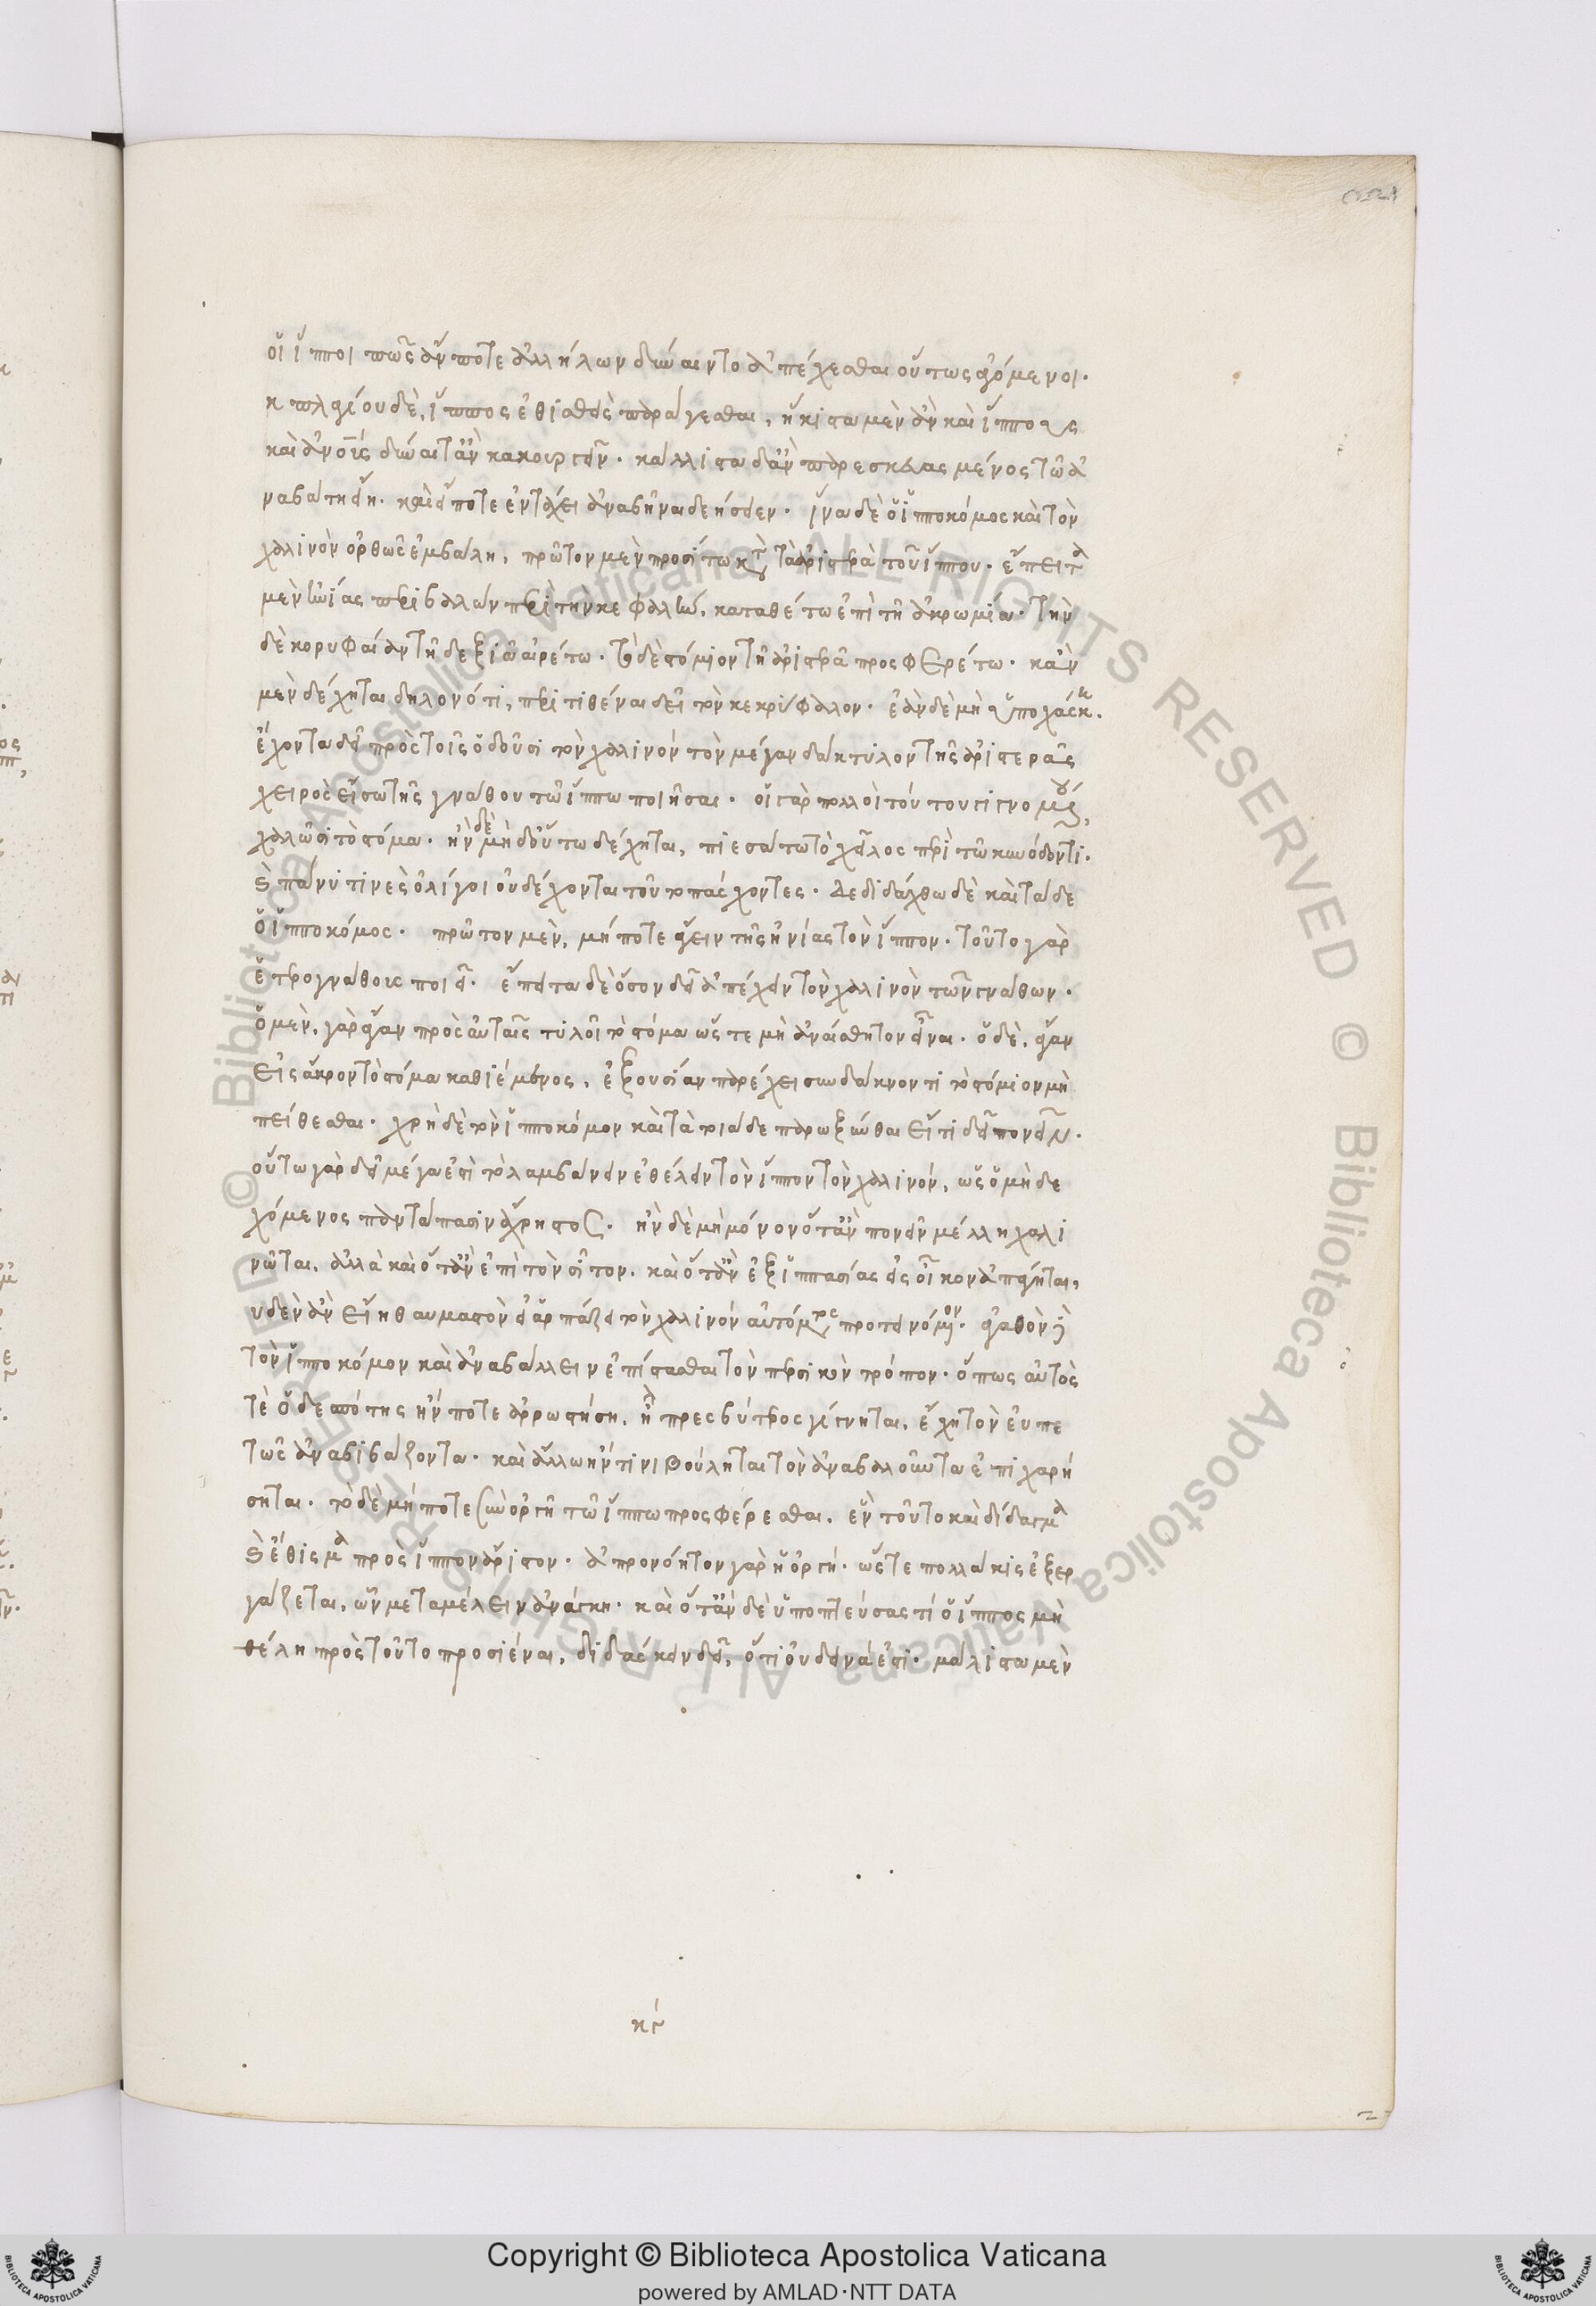 οἱ ἵπποι πῶς ἄν ποτε ἀλλήλων δύναιντο ἀπέχεσθαι οὕτως ἀγόμενοι.
ἐκ πλαγίου δὲ, ἵππος ἐθισθεὶς παράγεσθαι, ἥκιστα μὲν ἂν καὶ ἵππους
καὶ ἀνοὺς δύναιτ' ἂν κακουργεῖν. κάλλιστα δ' ἂν παρεσκευασμένος τῶ ἀ
ναβάτη εἴη. καὶ εἴποτε ἐν τάχει ἀναβῆναι δεήσειεν. ἵνα δὲ ὁ ἱπποκόμος καὶ τὸν
χαλινὸν ὀρθῶς ἐμβάλη, πρῶτον μὲν προσίτω κατὰ τὰ ἀριστερὰ τοῦ ἵππου. ἔπειτα
μὲν ἡνίας περιβαλὼν περὶ τὴν κεφαλὴν, καταθέτω ἐπὶ τῆ ἀκρωμία. τὴν
δὲ κορυφαίαν τῆ δεξιᾶ αἱρέτω. τὸ δὲ στόμιον τῆ ἀριστερᾶ προσφερέτω. κἂν
μὲν δέχηται δηλονότι, περιτιθέναι δεῖ τὸν κεκρύφαλον. ἐὰν δὲ μὴ ὑποχάσκη.
ἔχοντα δεῖ πρὸς τοῖς ὀδοῦσι τὸν χαλινόν τὸν μέγαν δάκτυλον τῆς ἀριστερᾶς
χειρὸς εἴσω τῆς γνάθου τῶ ἵππω ποιῆσαι. οἱ γὰρ πολλοὶ τούτου γιγνομένου,
χαλῶσι τὸ στόμα. ἢν δὲ μὴ δ' οὕτω δέχηται, πιεσάτω τὸ χεῖλος περὶ τῶ κυνόδοντι.
καὶ πάνυ τινὲς ὀλίγοι οὐ δέχονται τοῦτο πάσχοντες. Δεδιδάχθω δὲ καὶ τάδε
ὁ ἱπποκόμος. πρῶτον μὲν, μήποτε ἄγειν τῆς ἡνίας τὸν ἵππον. τοῦτο γὰρ
ἑτερογνάθους ποιεῖ. ἔπειτα δὲ ὅσον δεῖ ἀπέχειν τὸν χαλινὸν τῶν γνάθων.
ὁ μὲν, γὰρ ἄγαν πρὸς αὐταῖς τυλοῖ τὸ στόμα ὥστε μὴ ἀναίσθητον εἶναι. ὁ δὲ, ἄγαν
εἰς ἄκρον τὸ στόμα καθιέμενος, ἐξουσίαν παρέχει συνδάκνοντι τὸ στόμιον μὴ
πείθεσθαι. χρὴ δὲ τὸν ἱπποκόμον καὶ τὰ τοιάδε παρωξύνθαι εἴ τι δεῖ πονεῖν.
οὕτω γὰρ δεῖ μέγα ἐστὶ τὸ λαμβάνειν ἐθέλειν τὸν ἵππον τὸν χαλινόν, ὡς ὁ μὴ δε
χόμενος παντάπασιν ἄχρηστος. ἢν δὲ μὴ μόνον ὅταν πονεῖν μέλλη χαλι
νῶται, ἀλλὰ καὶ ὅταν ἐπὶ τὸν σῖτον. καὶ ὅταν ἐξ ἱππασίας εἰς οἶκον ἀπάγηται,
οὐδὲν ἂν εἴη θαυμαστὸν εἰ ἁρπάζει τὸν χαλινόν αὐτόματος προτεινόμενον. ἀγαθὸν δὲ
τὸν ἱπποκόμον καὶ ἀναβάλλειν ἐπίστασθαι τὸν περσικὸν τρόπον. ὅπως αὐτὸς
τὲ ὁ δεσπότης ἤν ποτε ἀρρωστήση, ἢ πρεσβύτερος γίγνηται, ἔχη τὸν εὐπε
τῶς ἀναβιβάζοντα. καὶ ἄλλω ἤν τινι βούληται τὸν ἀναβαλοῦντα ἐπιχαρή
σηται. τὸ δὲ μήποτε σὺν ὀργῆ τῶ ἵππω προσφέρεσθαι, ἓν τοῦτο καὶ δίδαγμα
καὶ ἔθισμα πρὸς ἵππον ἄριστον. ἀπρονόητον γὰρ ἡ ὀργή. ὥστε πολλάκις ἐξερ
γάζεται, ὧν μεταμέλειν ἀνάγκη. καὶ ὅταν δὲ ὑποπτεύσας τί ὁ ἵππος μὴ
θέλη πρὸς τοῦτο προσιέναι, διδάσκειν δεῖ, ὅτι οὐ δεινά ἐστι. μάλιστα μὲν
© Biblioteca Apostolica Vaticana ALL RIGHTS RESERVED
Copyright © Biblioteca Apostolica Vaticana
powered by AMLAD·NTT DATA